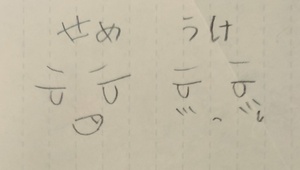 せめ うけ